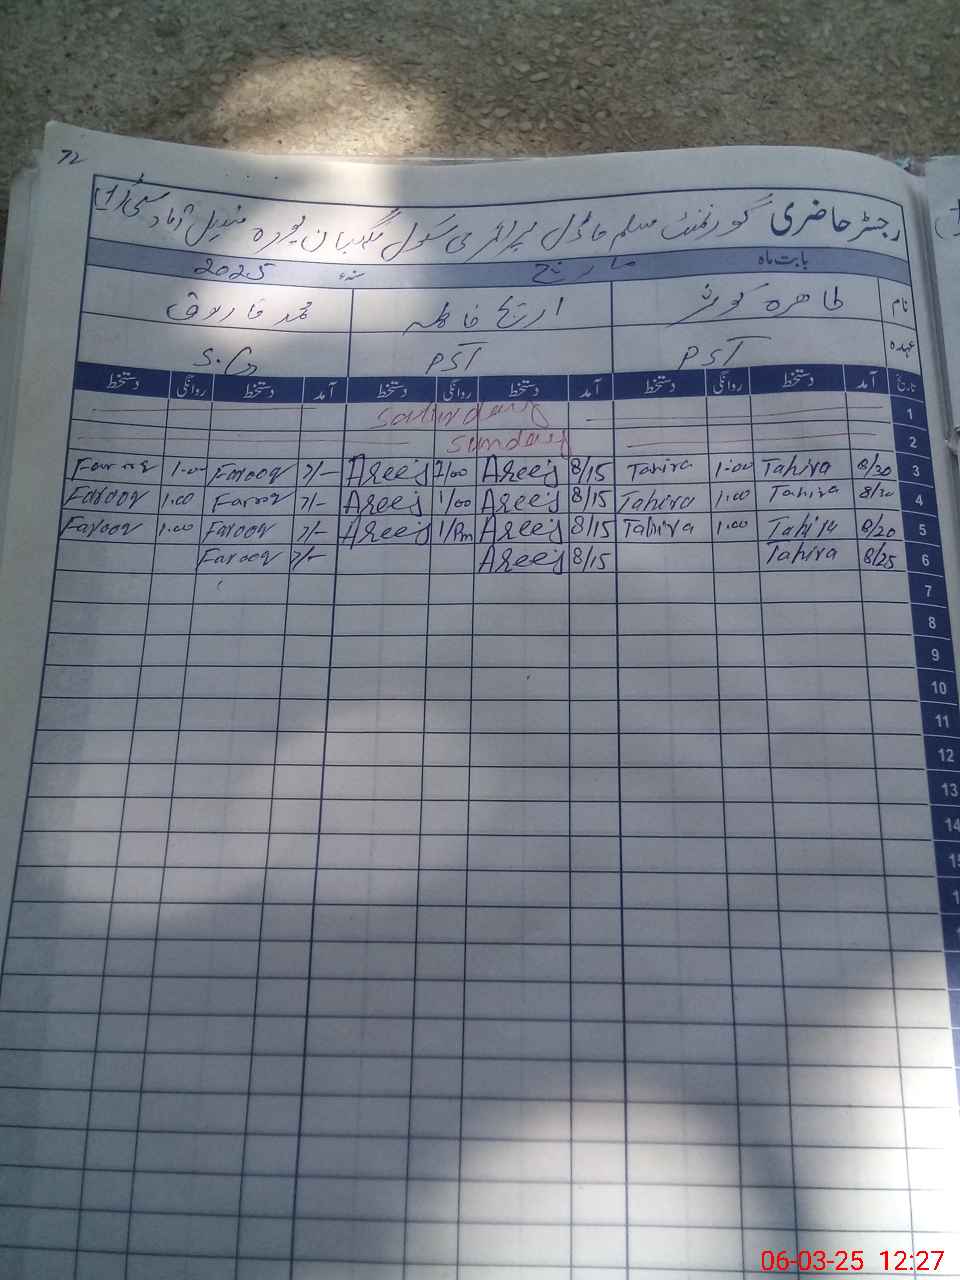 72
رجسٹر حاضری گورنمنٹ مسلم ماڈل پرائمری سکول نگہبان پورہ فیصل آباد سٹی (1)
بابت ماہ مارچ سنہء 2025
نام طاہرہ کوثر اریج فاطمہ محمد فاروق
عہدہ PST PST S.G
تاریخ آمد دستخط روانگی دستخط آمد دستخط روانگی دستخط آمد دستخط روانگی دستخط
1 Saturday
2 Sunday
3 8/20 Tahira 1:00 Tahira 8/15 Areej 1/00 Areej 7/- Farooq 1.00 Farooq
4 8/20 Tahira 1.00 Tahira 8/15 Areej 1/00 Areej 7/- Farooq 1.00 Farooq
5 8/20 Tahira 1.00 Tahira 8/15 Areej 1/Pm Areej 7/- Farooq 1.00 Farooq
6 8/25 Tahira 8/15 Areej 7/- Farooq
7
8
9
10
11
12
13
14
06-03-25 12:27